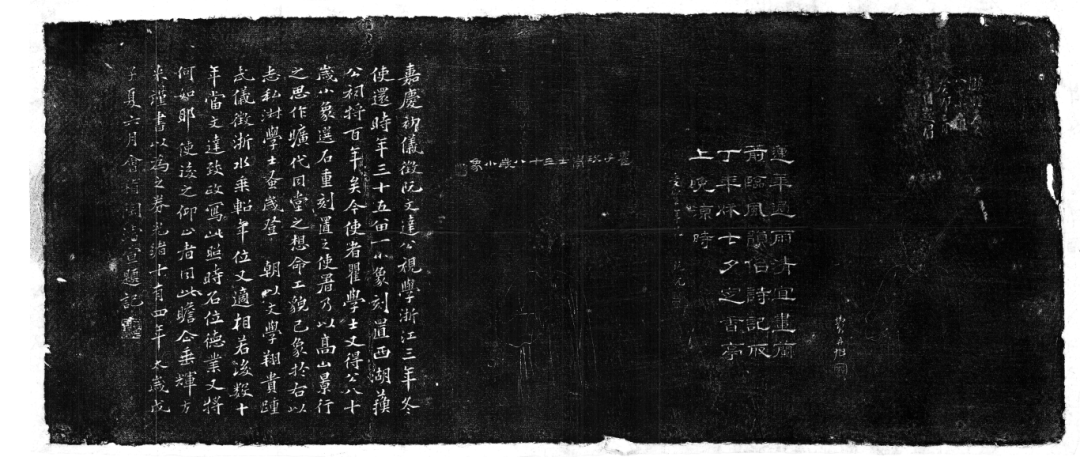 蓮華過雨清宜畫蘭
箭臨風韻恰詩記取
丁年休士夕定香亭
上晚涼時
瞿子玖學士三十八歲小象
嘉慶初儀徵阮文達公視學浙江三年冬
使還時年三十五留一小象刻置西湖蘇
公祠將百年矣今使者瞿學士又得公八十
歲小象選石重刻置之使署乃以高山景行
之思作曠代同堂之想命工貌己象於右以
志私淑學士蚤歲登 朝以文學翔貴踵
武儀徵浙水乘軺年位又適相若後數十
年當文達致政寫此照時名位德業又將
何如耶使後之仰止者因此瞻合垂輝方
來謹書以為之券光緒十有四年太歲戊
子夏六月會稽陶濬宣題記